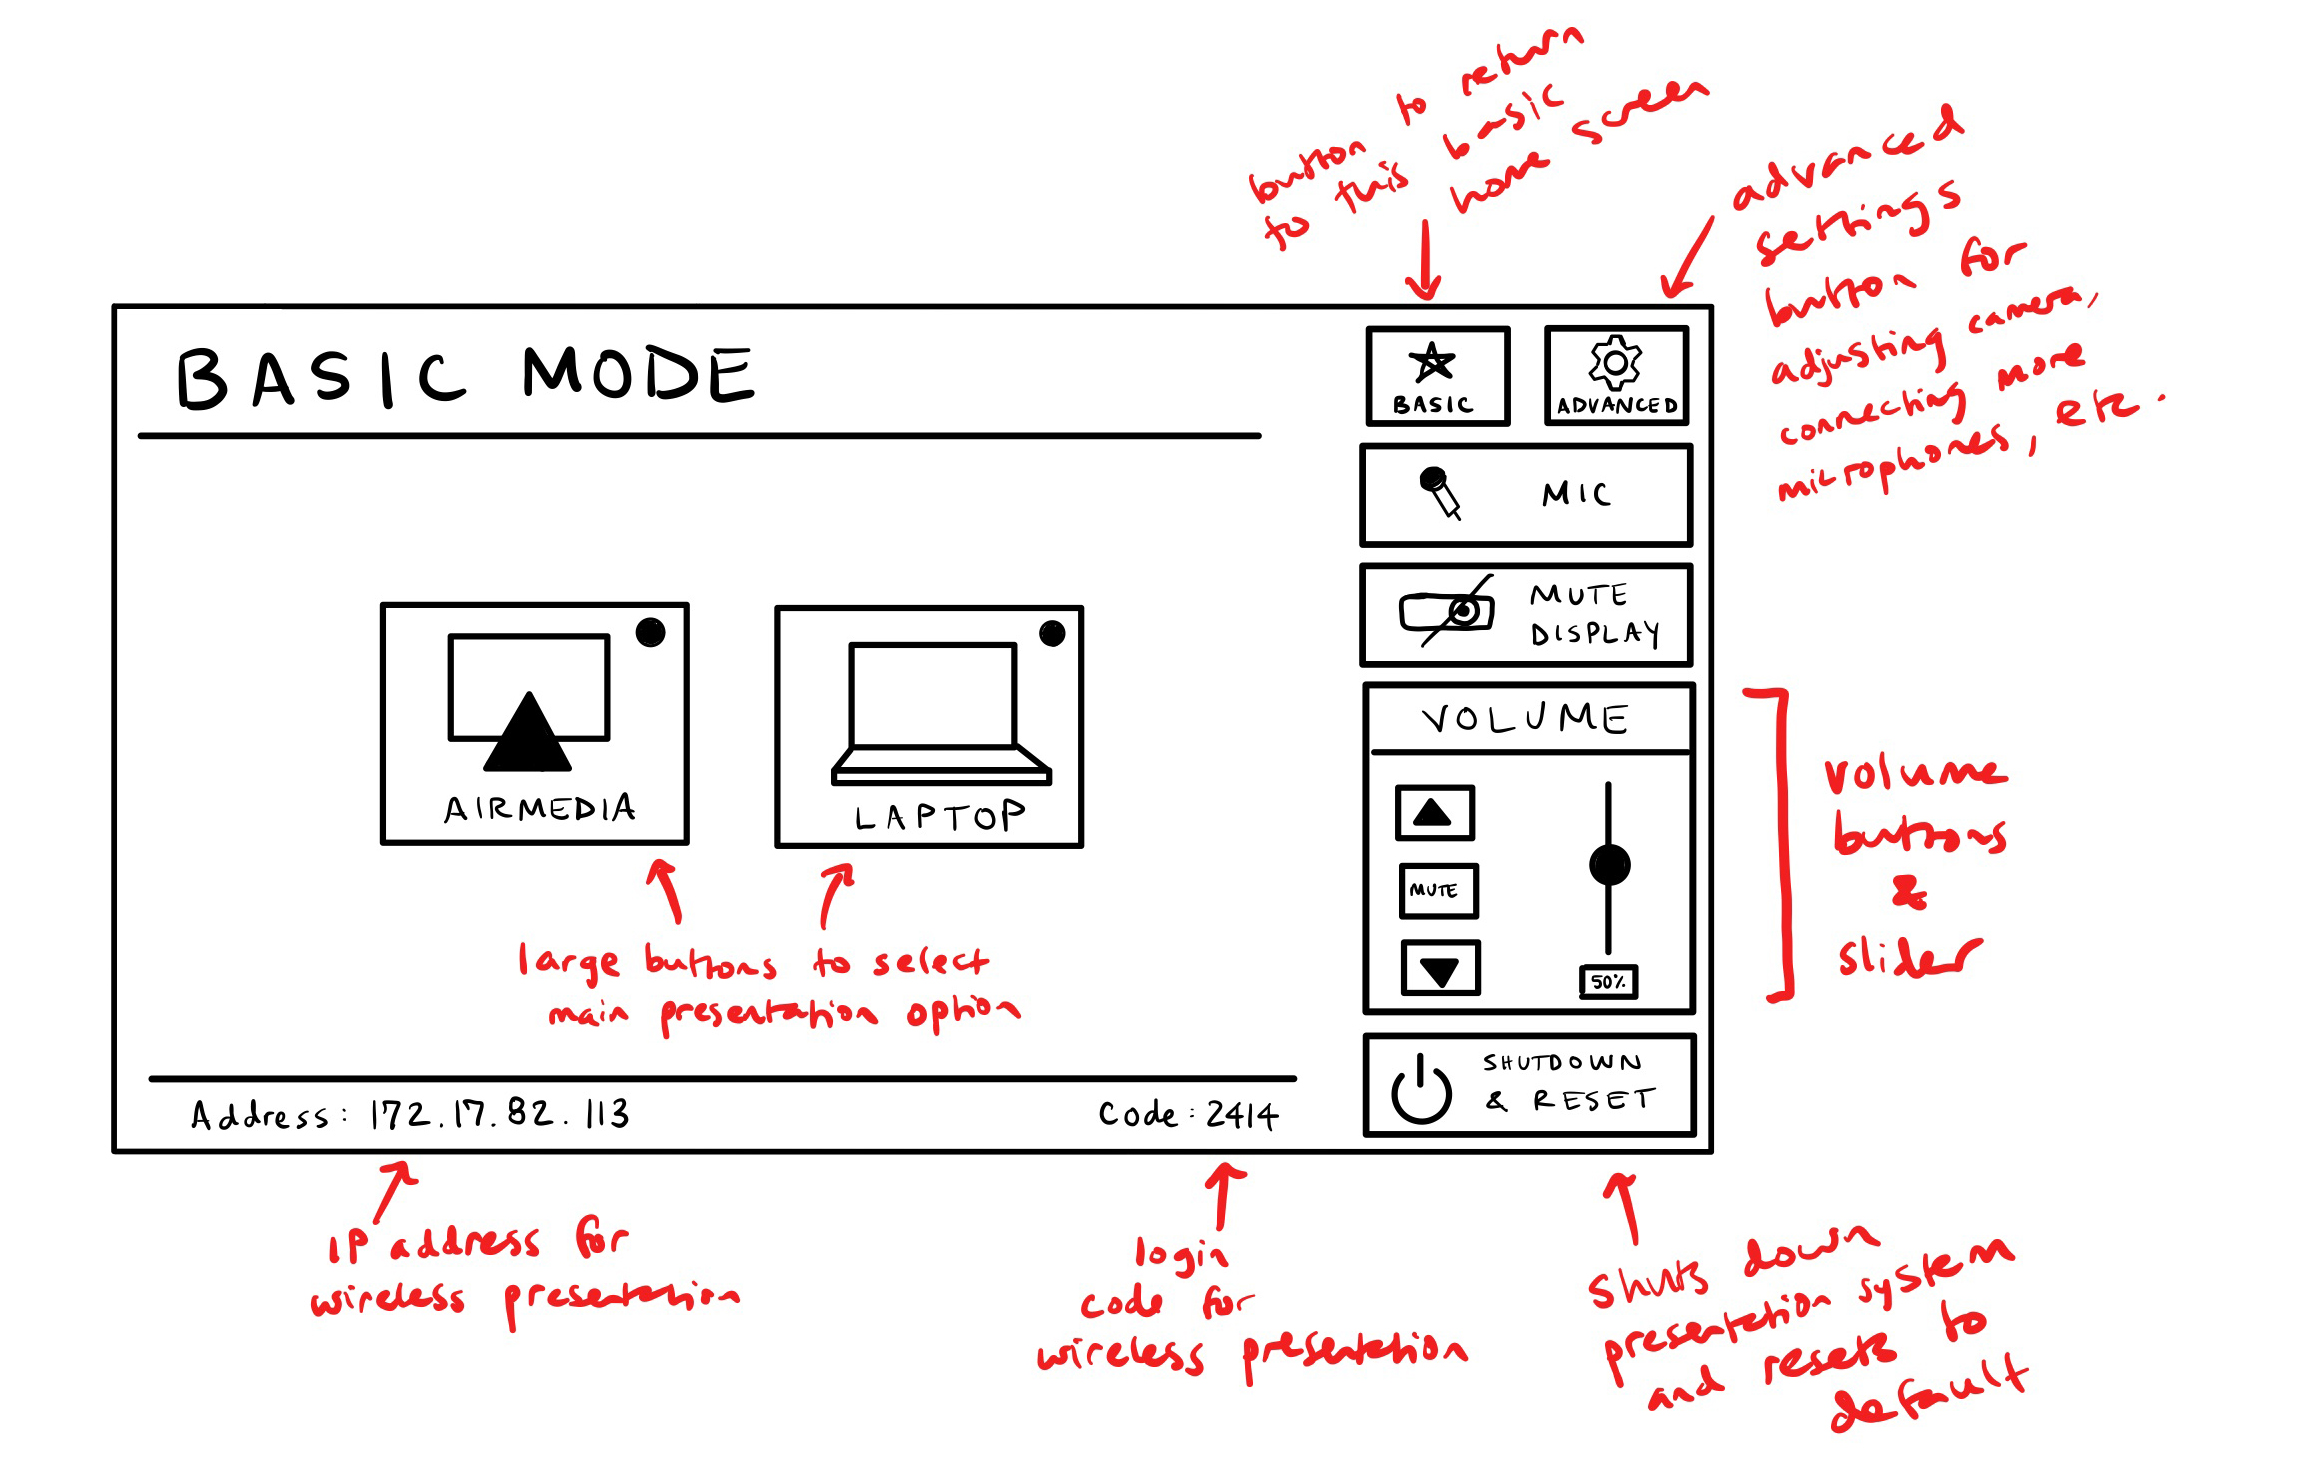 button to return
to this basic
home screen
advanced
settings
button for
adjusting camera,
connecting more
microphones, etc.
BASIC MODE
BASIC
ADVANCED
MIC
MUTE
DISPLAY
VOLUME
MUTE
50%
AIRMEDIA
LAPTOP
large buttons to select
main presentation option
volume
buttons
&
slider
SHUTDOWN
& RESET
Address: 172.17.82.113
Code: 2414
IP address for
wireless presentation
login
code for
wireless presentation
shuts down
presentation system
and resets to
default